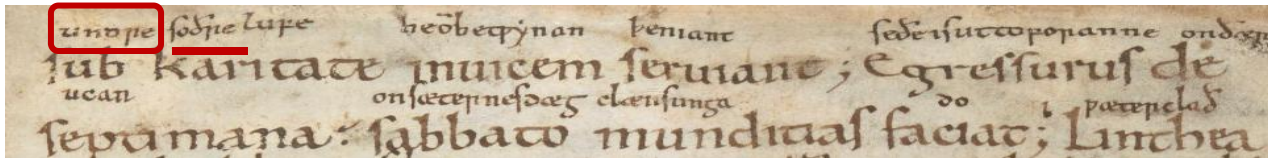 undre soðre lufe heōbetƿynan þeniant seðe is ut to
sub karitate inuicem seruiant; Egressurus de
ucan onsæternesdæg clænsunga do ƿæterclað
septimana: sabbato munditias faciat; Linthea